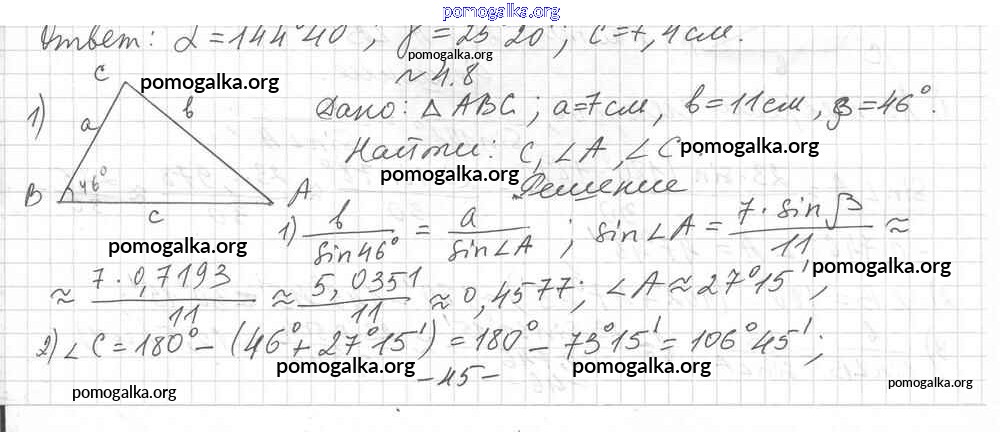 pomogalka.org
Ответ: α = 144°40', γ = 25°20'; c = 7,4 см.
pomogalka.org
№ 4.8
C
pomogalka.org
1)
a
b
Дано: △ ABC; a = 7 см, b = 11 см, β = 46°.
Найти: c, ∠A, ∠C
pomogalka.org
46°
pomogalka.org
Решение
B
A
c
1) b/sin46° = a/sin∠A ; sin∠A = 7 · sin β/11 ≈
pomogalka.org
≈ 7 · 0,7193/11 ≈ 5,0351/11 ≈ 0,4577; ∠A ≈ 27°15';
pomogalka.org
2) ∠C = 180° - (46° + 27°15') = 180° - 73°15' = 106°45';
pomogalka.org
pomogalka.org
-45-
pomogalka.org
pomogalka.org